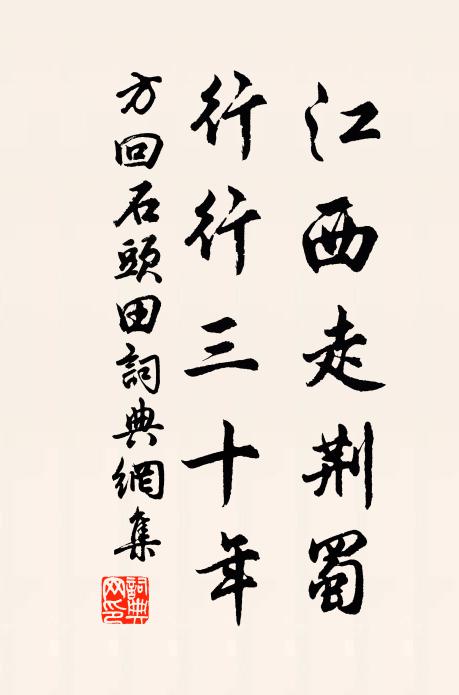 江西走荆蜀
行行三十年
方回石頭田詞典網集
詞典网印